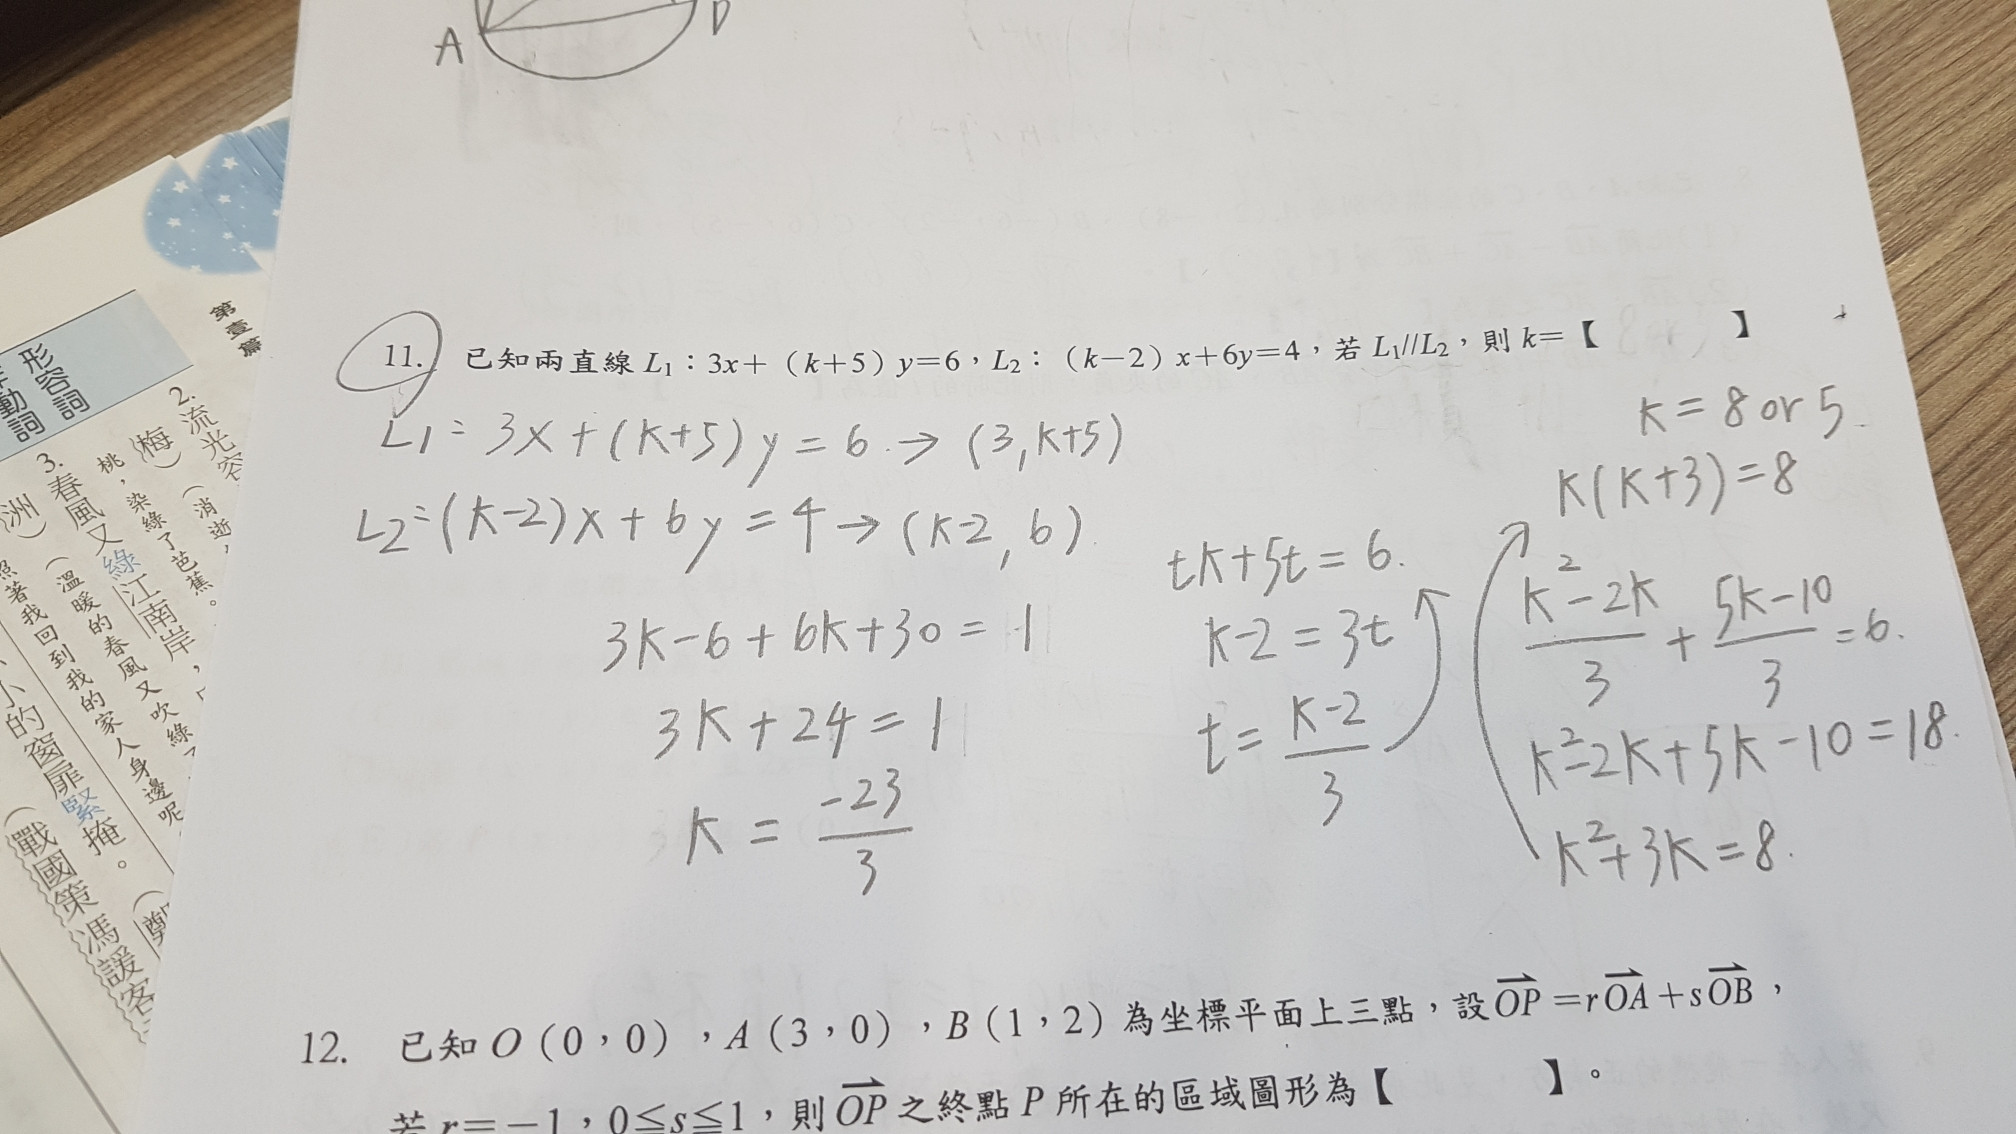 A D
第壹篇
形容詞
動詞
2. 流光容
(消逝,
(梅)
桃,染綠了芭蕉。
3. 春風又綠江南岸,
(溫暖的春風又吹綠了
洲)
照著我回到我的家人身邊呢
小的窗扉緊掩。
(戰國策馮諼客
11. 已知兩直線 L₁:3x+(k+5)y=6,L₂:(k−2)x+6y=4,若 L₁//L₂,則 k=【 】
L1= 3x+(k+5)y=6 → (3,k+5)
L2=(k-2)x+6y=4 → (k-2,6)
3k-6+6k+30=1
3k+24=1
k=-23/3
tk+5t=6.
k-2=3t
t=k-2/3
k=8 or 5
k(k+3)=8
k²-2k/3+5k-10/3=6.
k²-2k+5k-10=18.
k²+3k=8.
12. 已知 O(0,0),A(3,0),B(1,2)為坐標平面上三點,設 OP⃗=rOA⃗+sOB⃗,
若 r=−1,0≦s≦1,則 OP⃗ 之終點 P 所在的區域圖形為【 】。